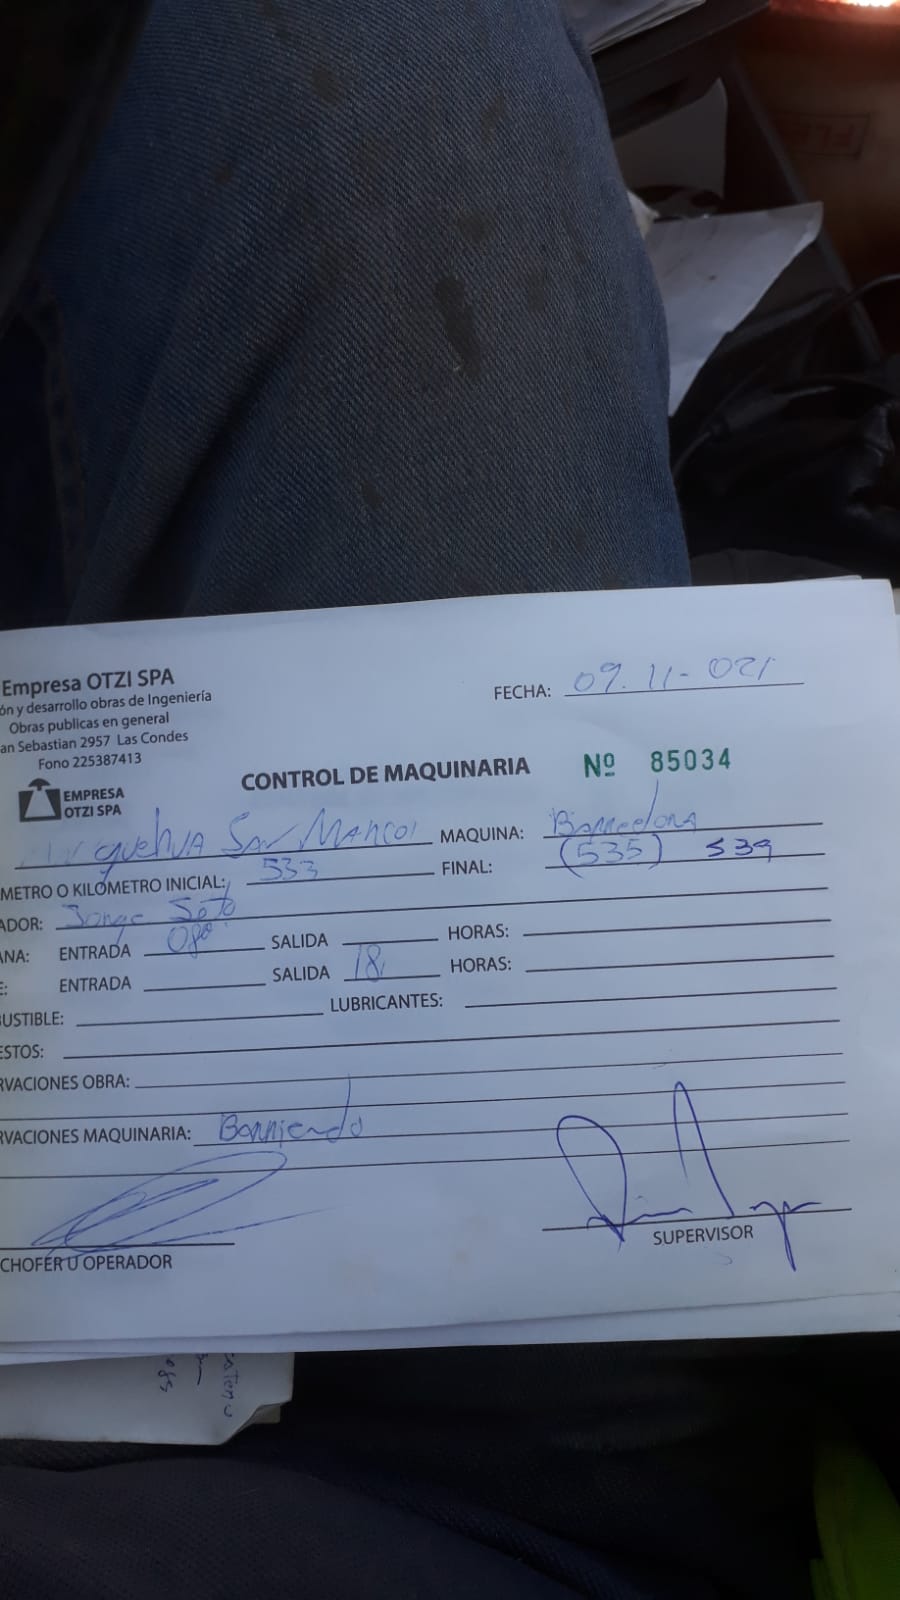 Empresa OTZI SPA
ón y desarrollo obras de Ingeniería
Obras publicas en general
an Sebastian 2957 Las Condes
Fono 225387413
FECHA: 09.11-021
EMPRESA
OTZI SPA
CONTROL DE MAQUINARIA Nº 85034
San MAQUINA: Barredora
METRO O KILÓMETRO INICIAL: 533 FINAL: (535) 539
ADOR: Jorge Soto
ANA: ENTRADA 08⁰⁰ SALIDA HORAS:
E: ENTRADA SALIDA 18 HORAS:
BUSTIBLE: LUBRICANTES:
ESTOS:
RVACIONES OBRA:
RVACIONES MAQUINARIA: Barriendo
CHOFER U OPERADOR
SUPERVISOR